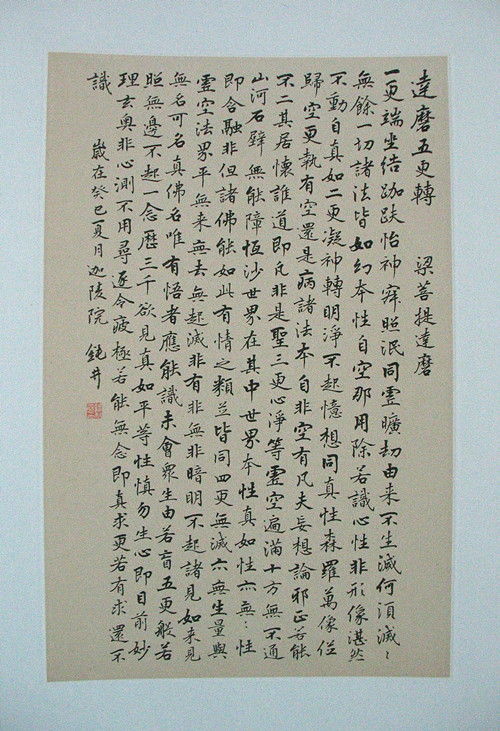 達磨五更轉 梁菩提達磨
一更端坐結跏趺怡神寂照泯同虛曠劫由來不生滅何須滅〻
無餘一切諸法皆如幻本性自空那用除若識心性非形像湛然
不動自真如二更凝神轉明淨不起憶想同真性森羅萬像併
歸空更執有空還是病諸法本自非空有凡夫妄想論邪正若能
不二其居懷誰道即凡非是聖三更心淨等虛空遍滿十方無不通
山河石壁無能障恆沙世界在其中世界本性真如性亦無〻性
即含融非但諸佛能如此有情之類並皆同四更無滅亦無生量與
虛空法界平無來無去無起滅非有非無非暗明不起諸見如來見
無名可名真佛名唯有悟者應能識未會眾生由若盲五更般若
照無邊不起一念歷三千欲見真如平等性慎勿生心即目前妙
理玄奧非心測不用尋逐令疲極若能無念即真求更若有求還不
識 歲在癸巳夏月迦陵院鈍井